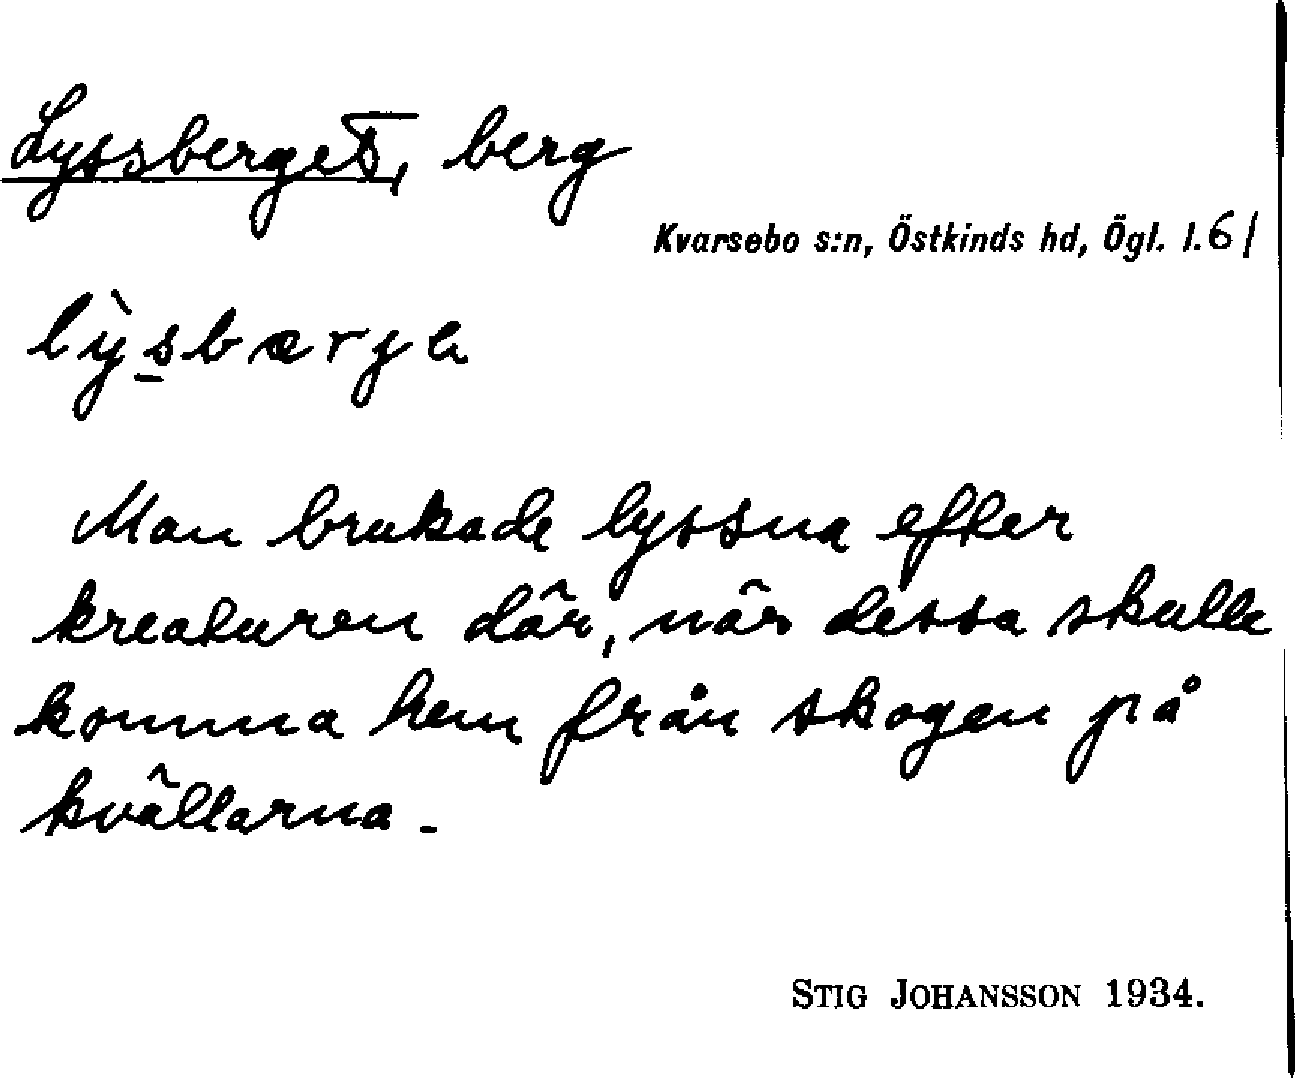 Lyssberget, berg
Kvarsebo s:n, Östkinds hd, Ögl. l. 61
lỳsbærje
Man brukade lyssna efter
kreaturen där, när dessa skulle
komma hem från skogen på
kvällarna.
STIG JOHANSSON 1934.